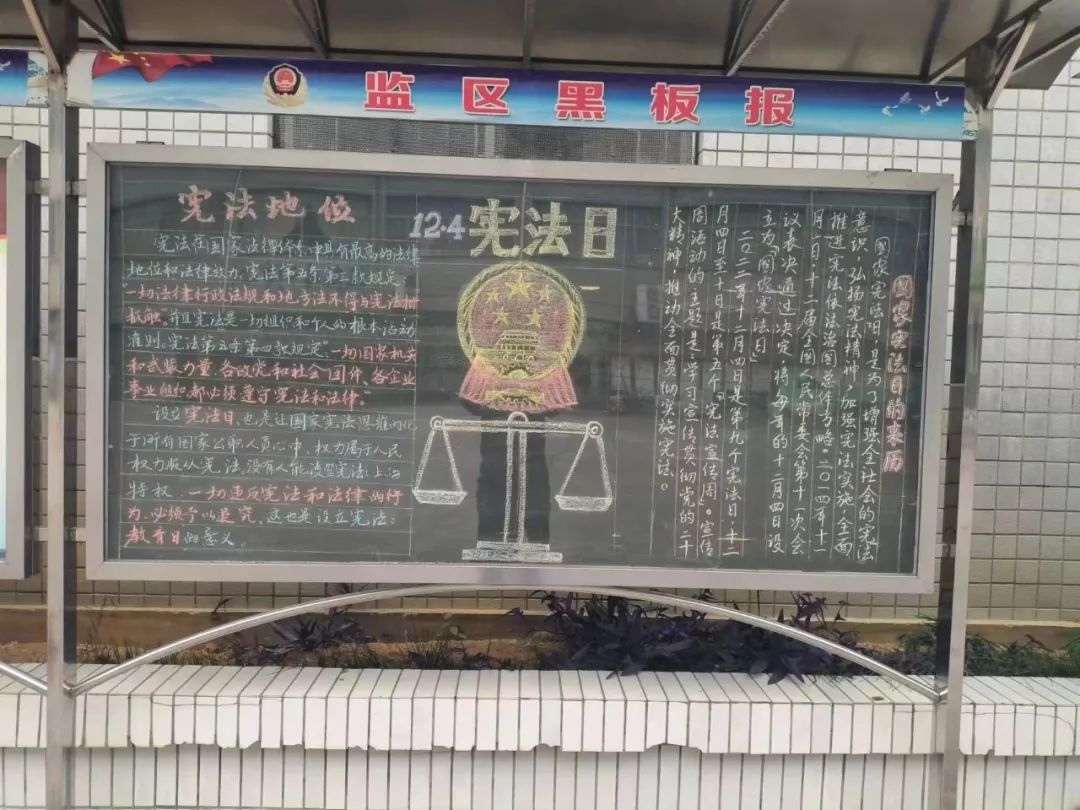 监区黑板报
宪法地位
宪法在国家法律体系中具有最高的法律
地位和法律效力,宪法第五条第三款规定
"一切法律行政法规和地方法不得与宪法相
抵触。并且宪法是一切组织和个人的根本活动
准则。宪法第五条第四款规定"一切国家机关
和武装力量、各政党和社会团体、各企业
事业组织都必须遵守宪法和法律。"
设立宪法日,也是让国家宪法思维内化
于所有国家公职人员心中。权力属于人民
权力服从宪法。没有人能凌驾宪法上
特权,一切违反宪法和法律的行
为,必须予以追究。这也是设立宪法
教育日的意义。
12·4宪法日
国家宪法日的来历
国家宪法日,是为了增强全社会的宪法
意识,弘扬宪法精神,加强宪法实施,全面
推进宪法依法治国总作方略。二〇一四年十一
月一日十二届全国人民常委会第十一次会
议表决通过决定,将每年的十二月四日设
立为「国家宪法日」
二〇二二年十二月四日是第九个宪法日,十二
月四日至十日是第五个「宪法宣传周」。宣传
周活动的主题是:学习宣传贯彻党的二十
大精神,推动全面贯彻实施宪法。